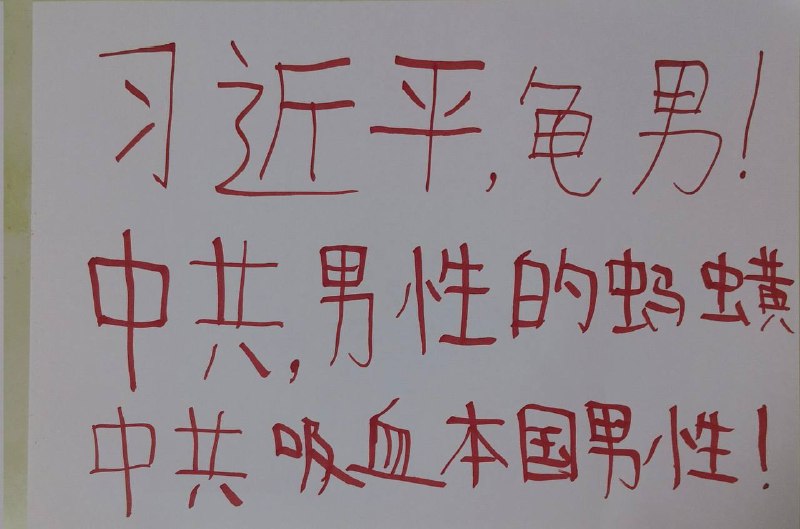 习近平,龟男!
中共,男性的蚂蟥
中共吸血本国男性!